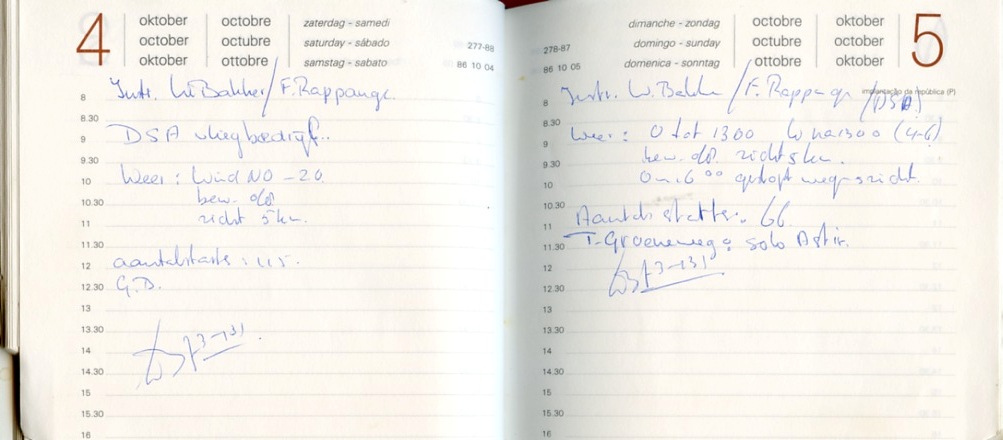 4
oktober octobre zaterdag - samedi
october octubre saturday - sábado 277-88
oktober ottobre samstag - sabato 86 10 04
8 Instr. W. Bakker / F. Rappange.
8.30
9 DSA vliegbedrijf.
9.30
10 Weer: Wind NO - 20.
10.30 bew. 0/8
11 zicht 5 km.
11.30
12 aantal starts: 115.
12.30 G.B.
13
13.30
14
14.30
15
15.30
16
dimanche - zondag octobre oktober 5
278-87 domingo - sunday octubre october
86 10 05 domenica - sonntag ottobre oktober
implantação da república (P)
8 Instr. W. Bakker / F. Rappange (DSA)
8.30
9 Weer: O tot 1300 W na 1300 (4-6)
9.30 bew. 0/8 zicht 5 km.
10 Om 16 00 gestopt wegens zicht.
10.30
11 Aantal starts: 66
11.30 T. Groeneweg: solo Astir.
12
12.30
13
13.30
14
14.30
15
15.30
16